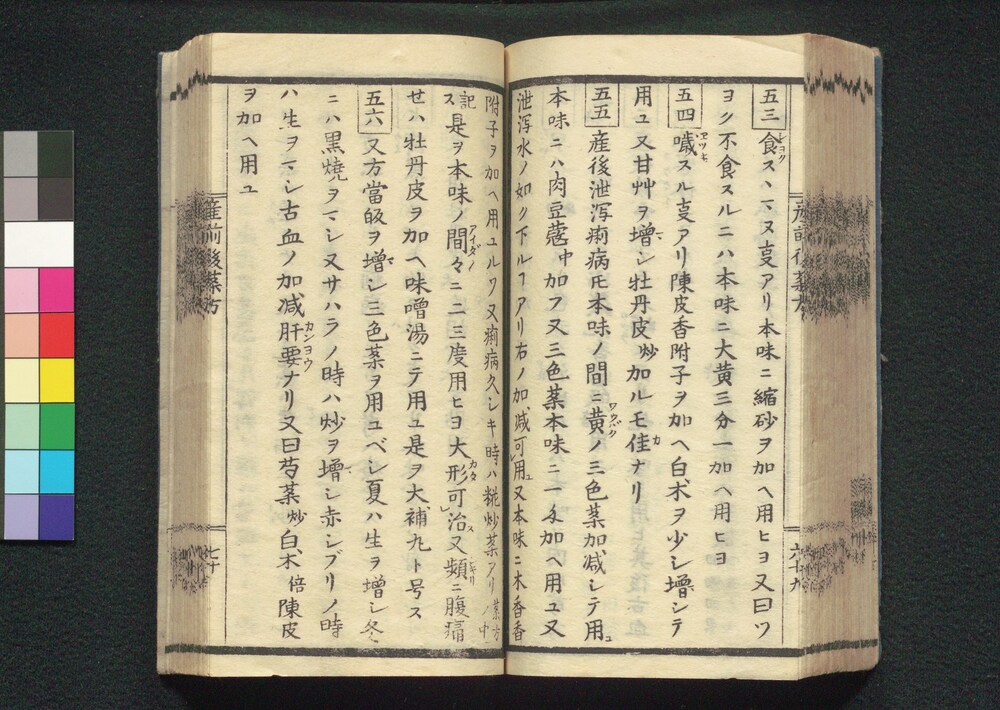 五三 食スヽマヌ亊アリ本味ニ縮砂ヲ加ヘ用ヒヨ又曰ツ
ヨク不食スルニハ本味ニ大黄三分一加ヘ用ヒヨ
五四 噦スル亊アリ陳皮香附子ヲ加ヘ白朮ヲ少シ増シテ
用ユ又甘艸ヲ増シ牡丹皮炒加ルモ佳ナリ
五五 産後泄瀉痢病𪜈本味ノ間ニ黄ノ三色藥加減シテ用ユ
本味ニハ肉豆蔻中加フ又三色藥本味ニ一匁加ヘ用ユ又
泄瀉水ノ如ク下ルヿアリ右ノ加減可用ユ又本味ニ木香香
附子ヲ加ヘ用ユルヿ又痢病久シキ時ハ糀炒藥アリ藥方ノ中
記ス是ヲ本味ノ間々ニ二三度用ヒヨ大形可治ス又頻ニ腹痛
セハ牡丹皮ヲ加ヘ味噌湯ニテ用ユ是ヲ大補九ト号ス
五六 又方當皈ヲ増シ三色藥ヲ用ユベシ夏ハ生ヲ増シ冬
ニハ黒燒ヲマシ又サハラノ時ハ炒ヲ増シ赤シブリノ時
ハ生ヲマシ古血ノ加减肝要ナリ又曰芍藥炒白朮倍陳皮
ヲ加ヘ用ユ
産前後藥方
六十九
産前後藥方
七十